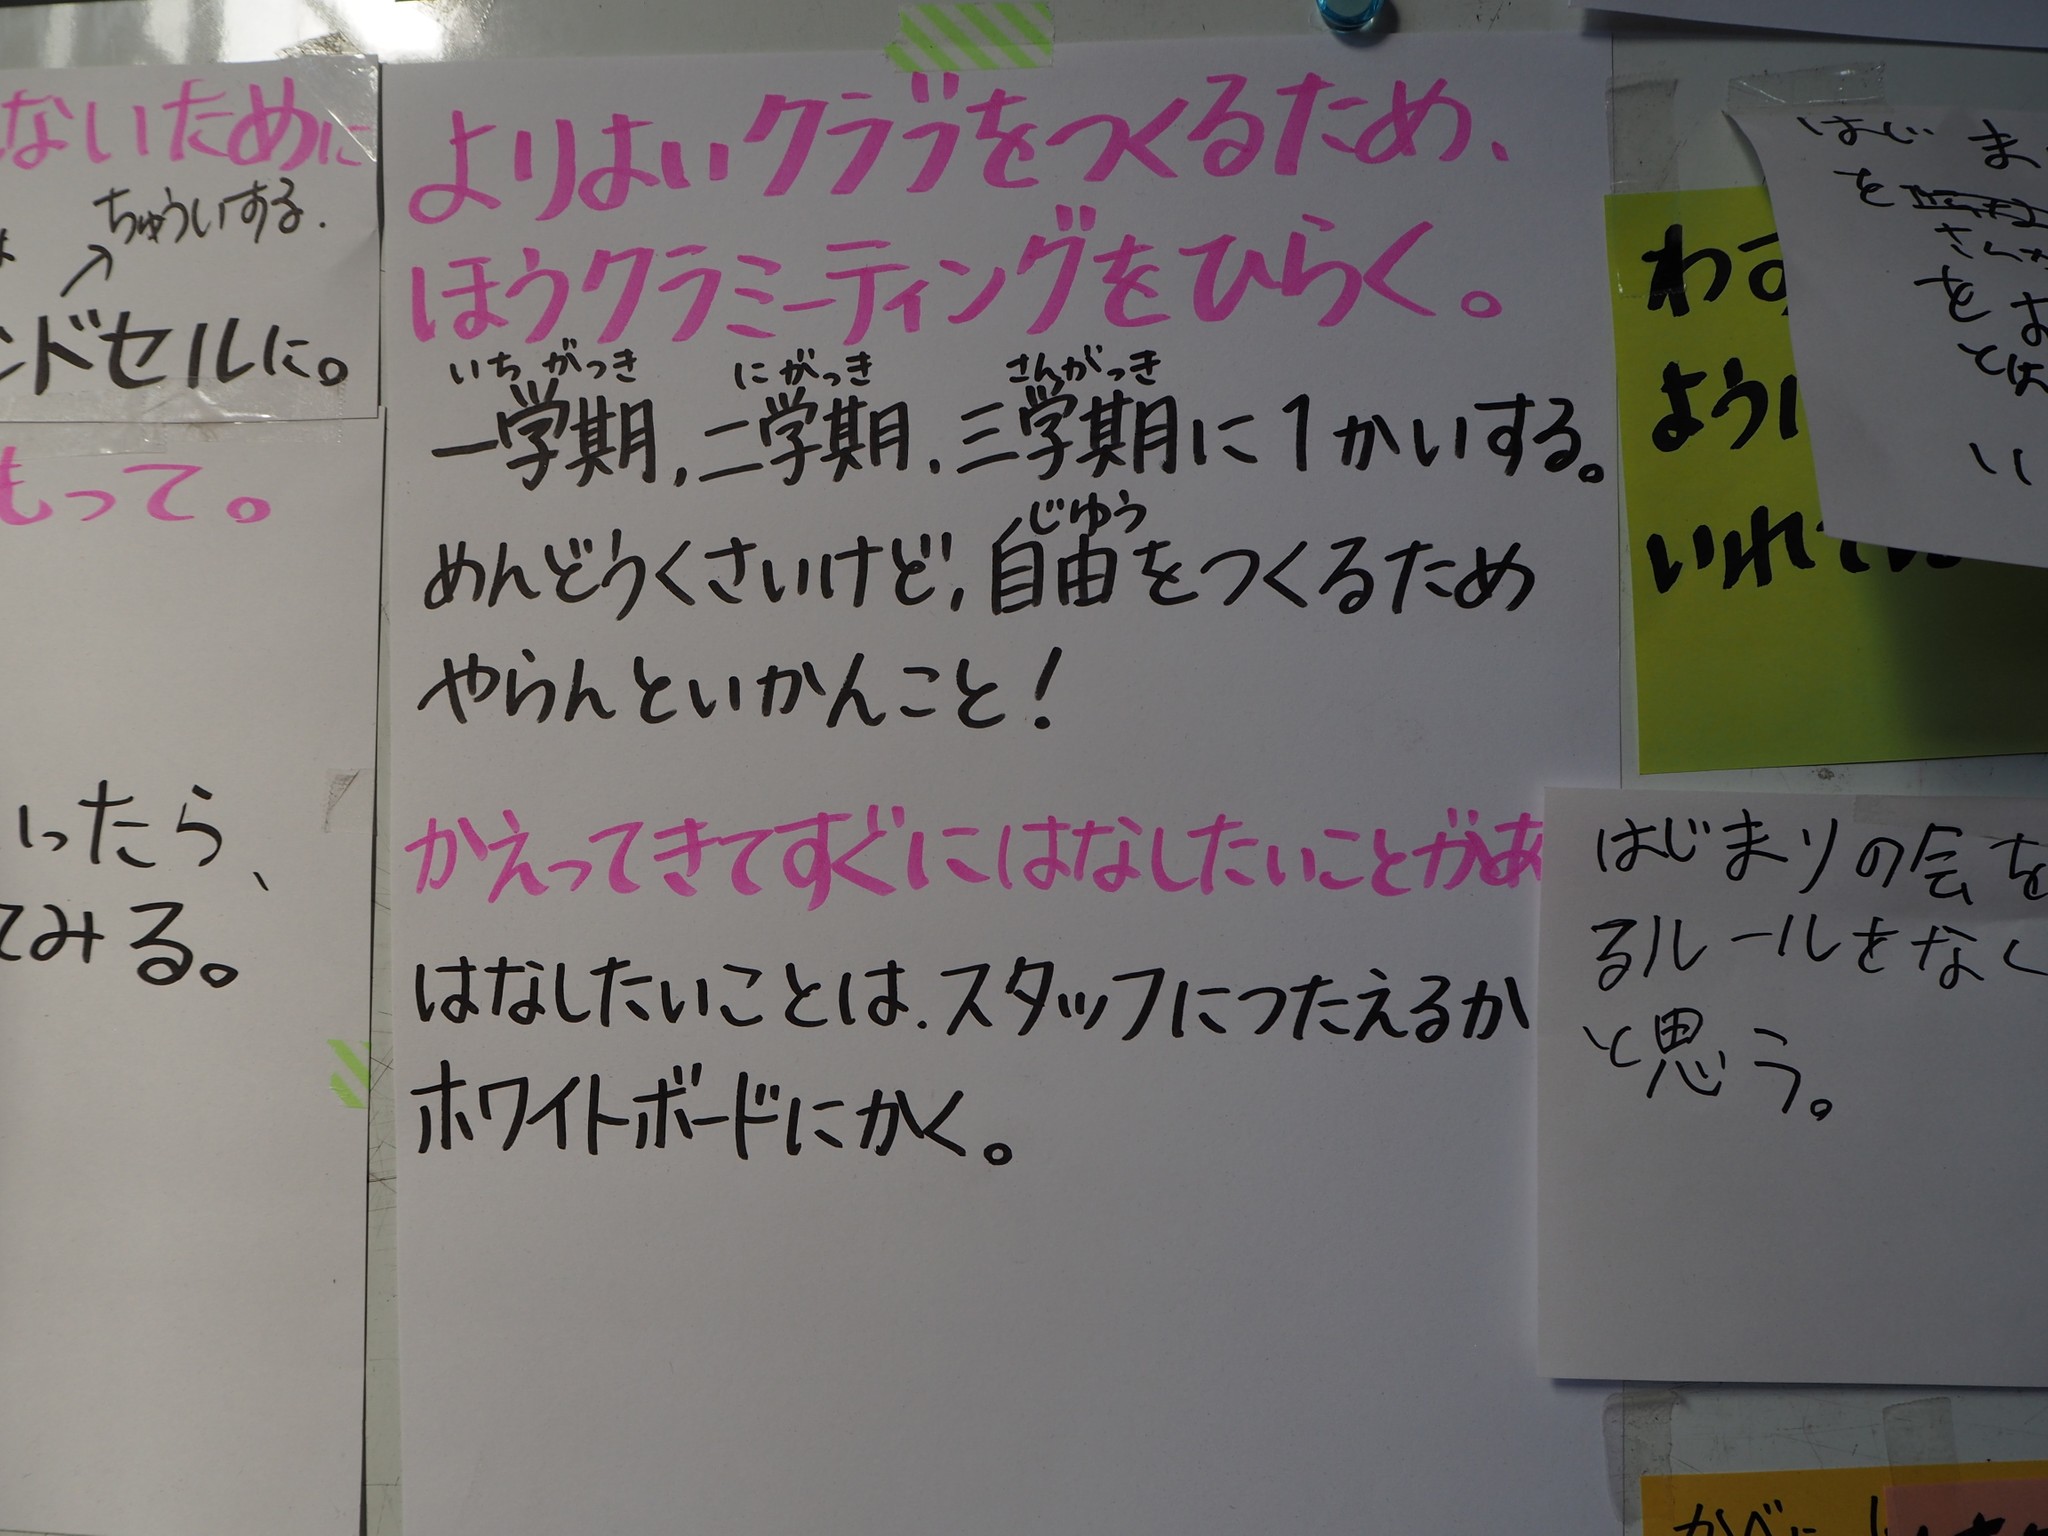 ないために
ちゅういする.
ンドセルに。
もって。
ったら、
てみる。
よりよいクラブをつくるため、
ほうクラミーティングをひらく。
いちがっき にがっき さんがっき
一学期,二学期,三学期に1かいする。
じゆう
めんどうくさいけど,自由をつくるため
やらんといかんこと!
かえってきてすぐにはなしたいことがあ
はなしたいことは,スタッフにつたえるか
ホワイトボードにかく。
はじま
を
さんか
をお
とは
い
わす
ように
いれて
はじまりの会を
るルールをなく
と思う。
かべに